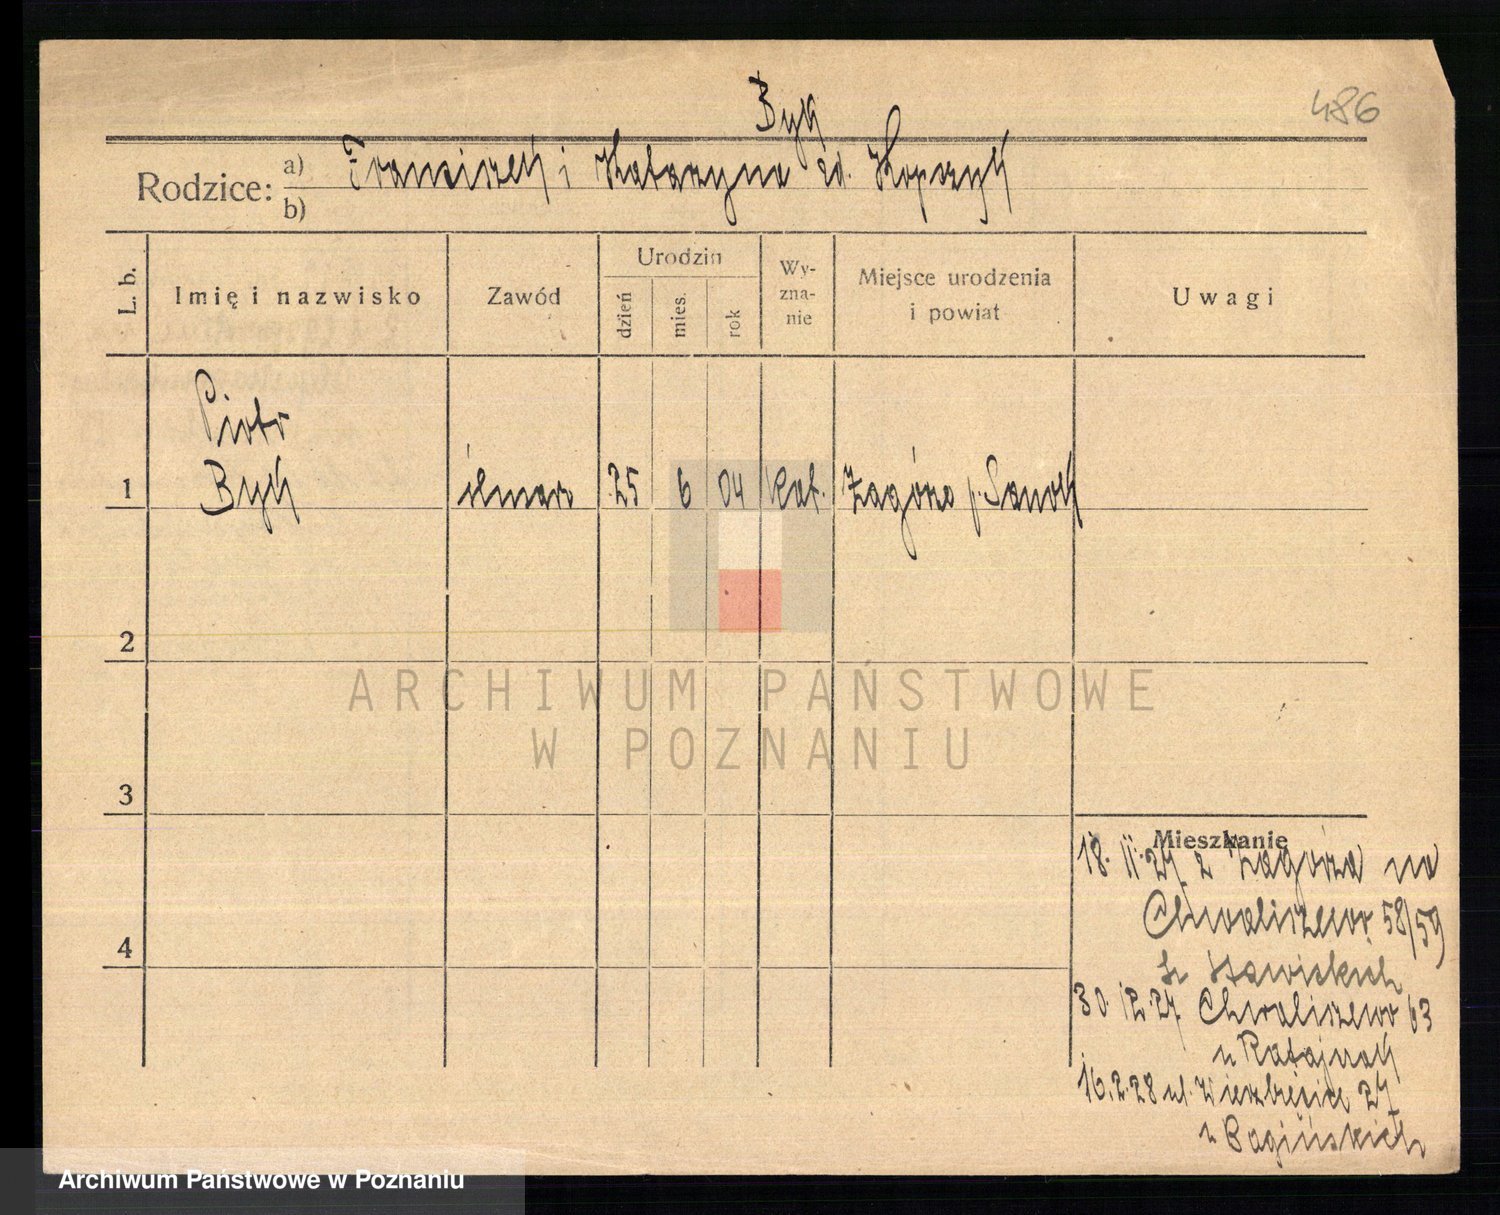 486
Byk
Rodzice: a) Franciszek i Katarzyna zd. Kopczyk
b)
L. b. Imię i nazwisko Zawód Urodzin dzień mies. rok Wyznanie Miejsce urodzenia i powiat Uwagi
Piotr
1 Byk ślusarz 25 6 04 kat. Zagórze p. Sanok
2
ARCHIWUM PAŃSTWOWE
W POZNANIU
3
Mieszkanie
18. 11. 27 z Zagórza na
Chwaliszewo 58/59
4
30. 12. 27 Chwaliszewo 63
u Ratajczak
16. 2. 28 ul. Wierzbięcice 27
u Bagińskich
Archiwum Państwowe w Poznaniu